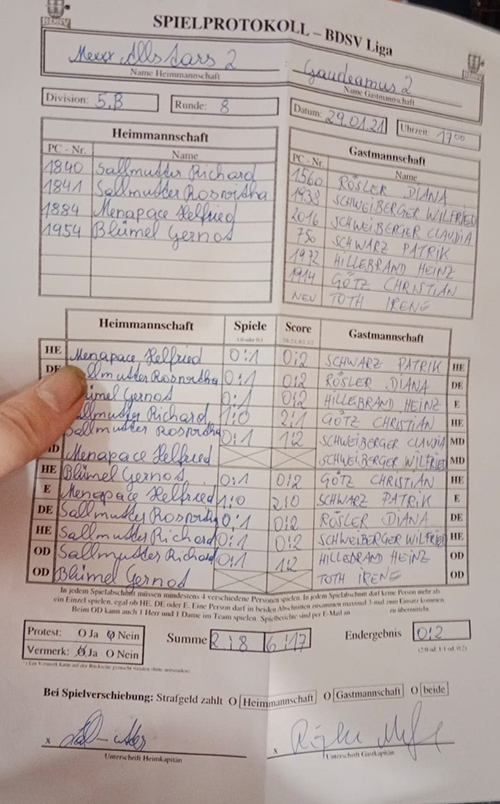 SPIELPROTOKOLL – BDSV Liga
Allstars 2 : Gaudeamus 2
Name Heimmannschaft Name Gastmannschaft
Division: 5.B Runde: 8 Datum: 29.01.21 Uhrzeit: 17 00
Heimmannschaft
PC - Nr. Name
1840 Sallmutter Richard
1841 Sallmutter Roswitha
1884 Menapace Helfried
1954 Blümel Gernot
Gastmannschaft
PC - Nr. Name
1560 RÖSLER DIANA
1938 SCHWEIBERGER WILFRIED
2016 SCHWEIBERGER CLAUDIA
750 SCHWARZ PATRIK
1972 HILLEBRAND HEINZ
1914 GÖTZ CHRISTIAN
NEU TOTH IRENE
Heimmannschaft Spiele Score Gastmannschaft
HE Menapace Helfried 0:1 0:2 SCHWARZ PATRIK HE
DE Sallmutter Roswitha 0:1 0:2 RÖSLER DIANA DE
Blümel Gernot 0:1 0:2 HILLEBRAND HEINZ E
Sallmutter Richard 1:0 2:1 GÖTZ CHRISTIAN HE
Sallmutter Roswitha 0:1 1:2 SCHWEIBERGER CLAUDIA MD
MD Menapace Helfried SCHWEIBERGER WILFRIED MD
HE Blümel Gernot 0:1 0:2 GÖTZ CHRISTIAN HE
E Menapace Helfried 1:0 2:0 SCHWARZ PATRIK E
DE Sallmutter Roswitha 0:1 0:2 RÖSLER DIANA DE
HE Sallmutter Richard 0:1 0:2 SCHWEIBERGER WILFRIED HE
OD Sallmutter Richard 0:1 1:2 HILLEBRAND HEINZ OD
OD Blümel Gernot TOTH IRENE OD
In jedem Spielabschnitt müssen mindestens 4 verschiedene Personen spielen. In jedem Spielabschnitt darf keine Person mehr als
ein Einzel spielen, egal ob HE, DE oder E. Eine Person darf in beiden Abschnitten zusammen maximal 3 mal zum Einsatz kommen.
Beim OD kann auch 1 Herr und 1 Dame im Team spielen. Spielberichte sind per E-Mail an zu übermitteln.
Protest: O Ja O Nein Summe 2:8 6:17 Endergebnis 0:2
Vermerk: O Ja O Nein
Bei Spielverschiebung: Strafgeld zahlt O Heimmannschaft O Gastmannschaft O beide
x x
Unterschrift Heimkapitän Unterschrift Gastkapitän